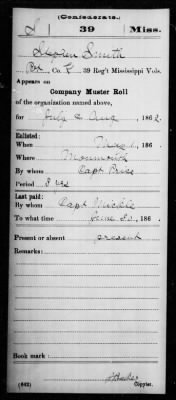 (Confederate.)
S 39 Miss.
Stephen Smith
Co. 39 Reg't Mississippi Vols.
Appears on
Company Muster Roll
of the organization named above,
for July & Aug, 1862.
Enlisted:
When 1, 186 .
Where Monmouth
By whom Capt Price
Period 3 yrs
Last paid:
By whom Capt Mickle
To what time June 30, 186 .
Present or absent present
Remarks:
Book mark:
(642) Copyist.